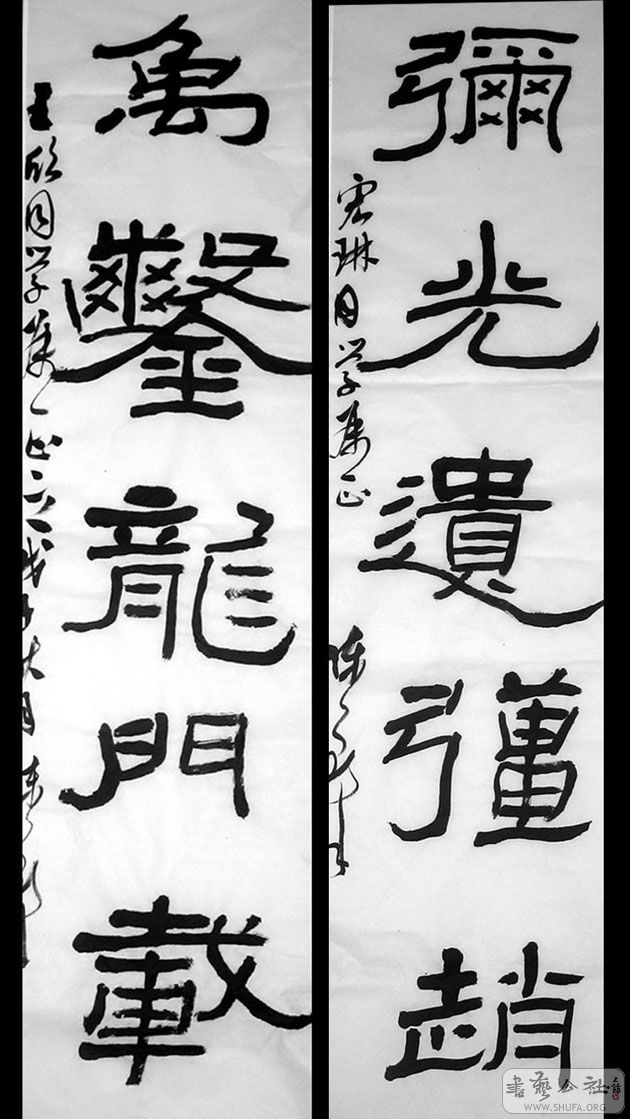 彌光遺彊趙
宏琳同学属正
禹鑿龍門載
王欣同学属正
書藝公社
WWW.SHUFA.ORG